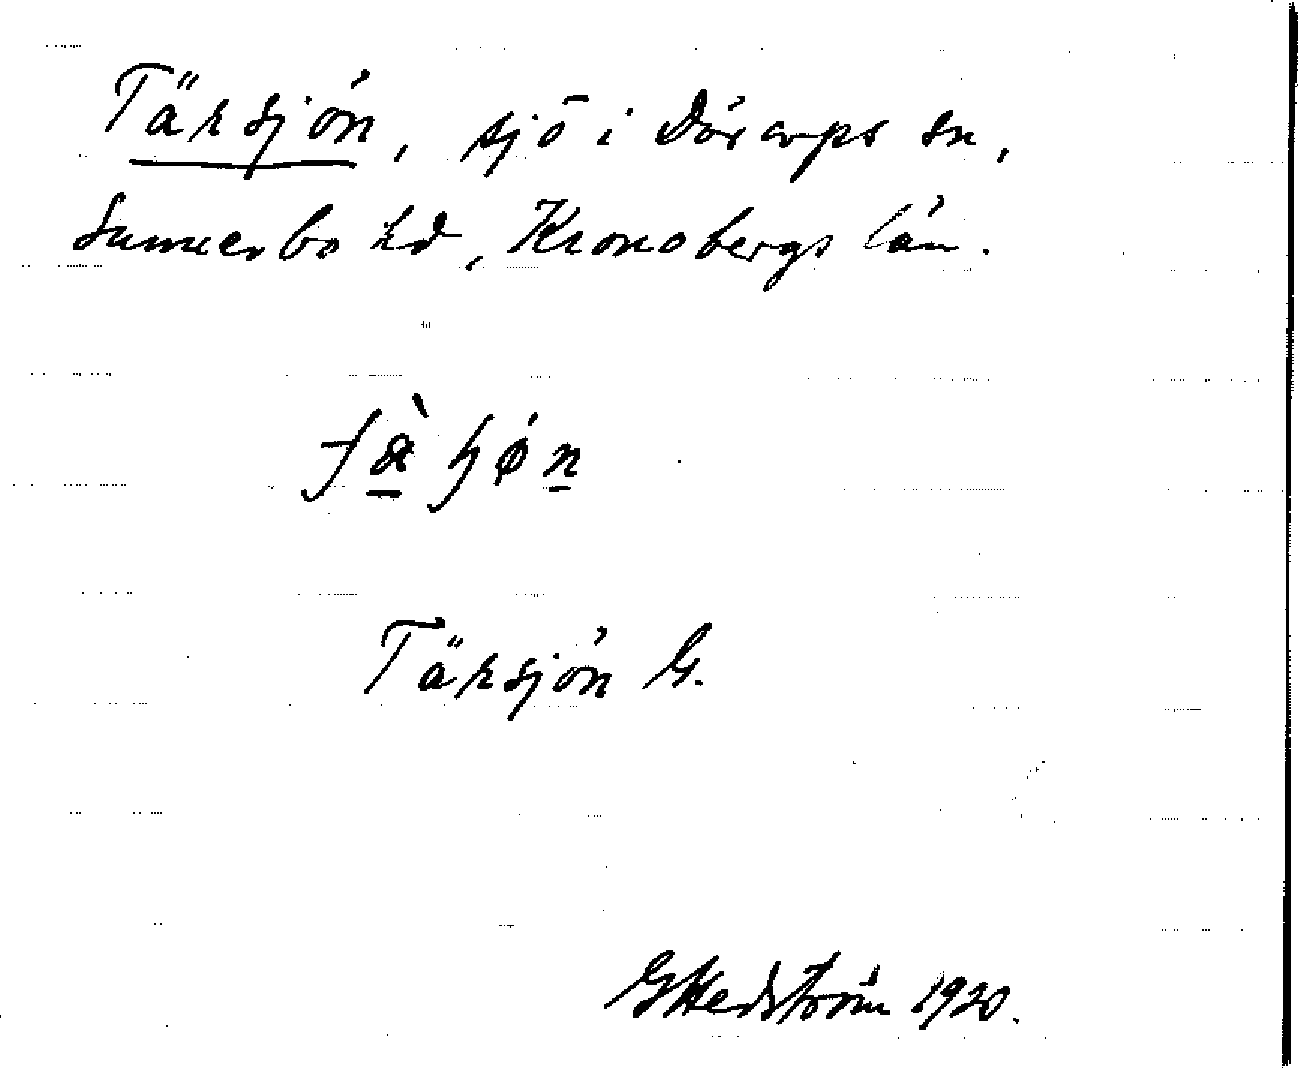 Tärsjön, sjö i Dörarps sn,
Sunnerbo hd, Kronobergs län.
Tärsjön G.
G Hedström 1920.